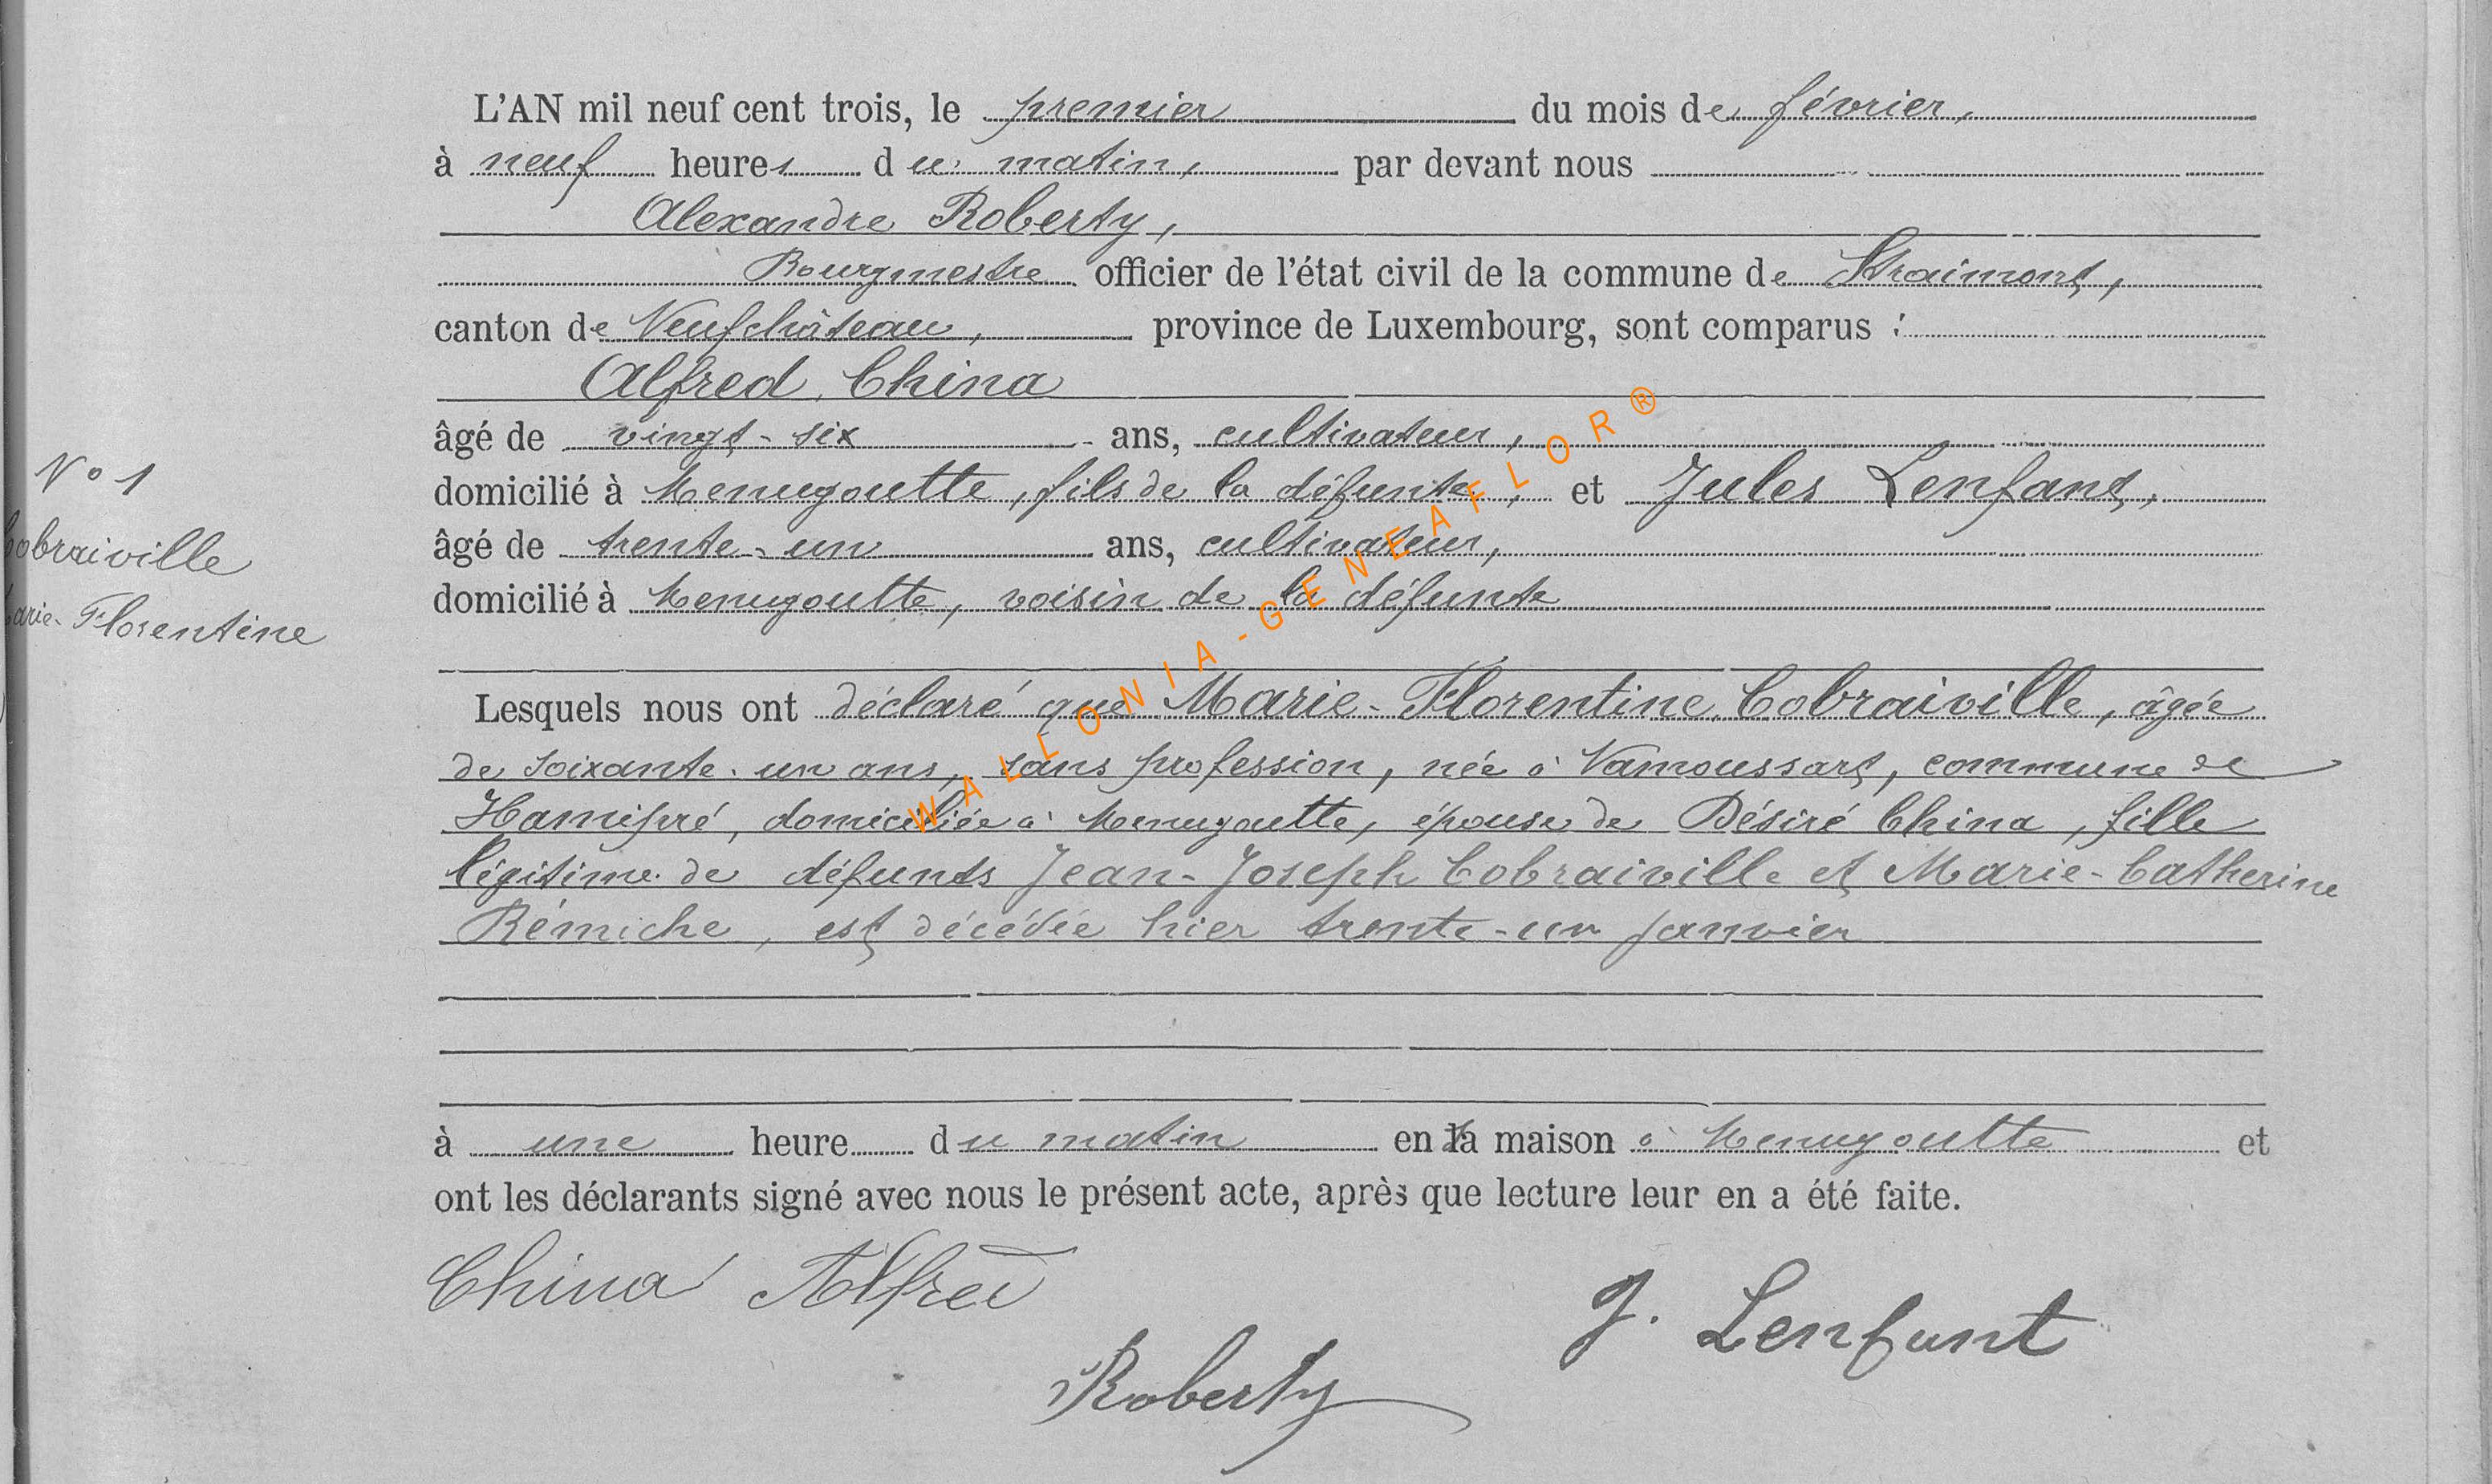 L'AN mil neuf cent trois, le premier du mois de février,
à neuf heures du matin, par devant nous
Alexandre Roberty,
Bourgmestre officier de l'état civil de la commune de Straimont,
canton de Neufchâteau, province de Luxembourg, sont comparus :
Alfred China
âgé de vingt-six ans, cultivateur,
domicilié à Menugoutte, fils de la défunte, et Jules Lenfant,
âgé de trente-un ans, cultivateur,
domicilié à Menugoutte, voisin de la défunte
N° 1
Cobraiville
Marie-Florentine
Lesquels nous ont déclaré que Marie-Florentine Cobraiville, âgée
de soixante-un ans, sans profession, née à Namoussart, commune de
Hamipré, domiciliée à Menugoutte, épouse de Désiré China, fille
légitime de défunts Jean-Joseph Cobraiville et Marie-Catherine
Rémiche, est décédée hier trente-un janvier
à une heure du matin en sa maison à Menugoutte et
ont les déclarants signé avec nous le présent acte, après que lecture leur en a été faite.
China Alfred
J. Lenfant
Roberty
WALLONIA-GENEAFLOR®